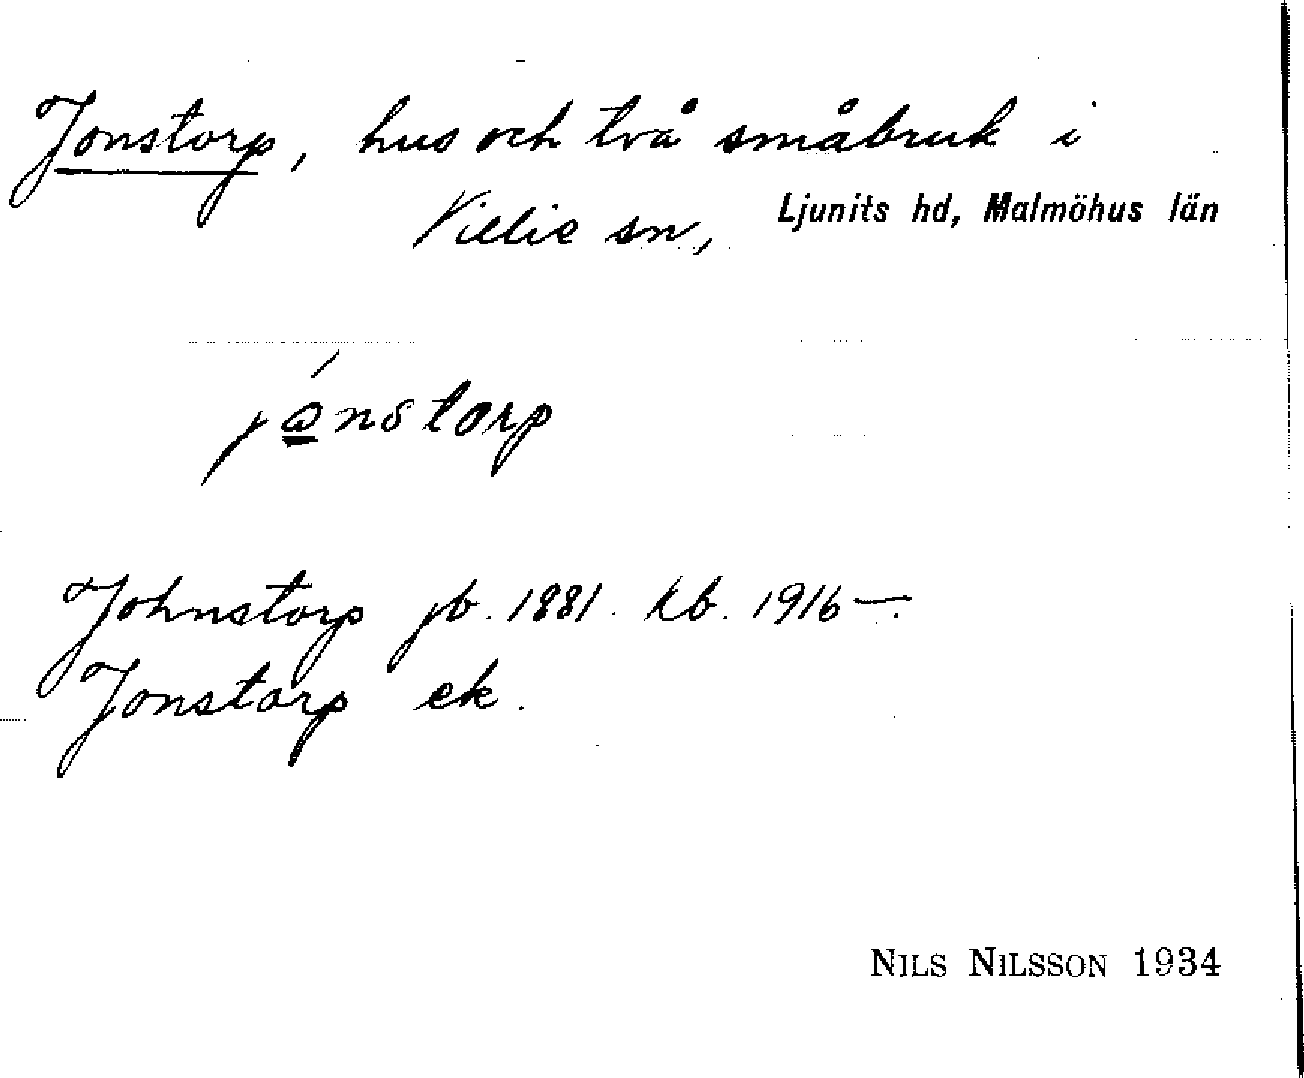 Jonstorp, hus och två småbruk i
Villie sn, Ljunits hd, Malmöhus län
jónstorp
Johnstorp jb. 1881. kb. 1916—.
Jonstorp ek.
NILS NILSSON 1934